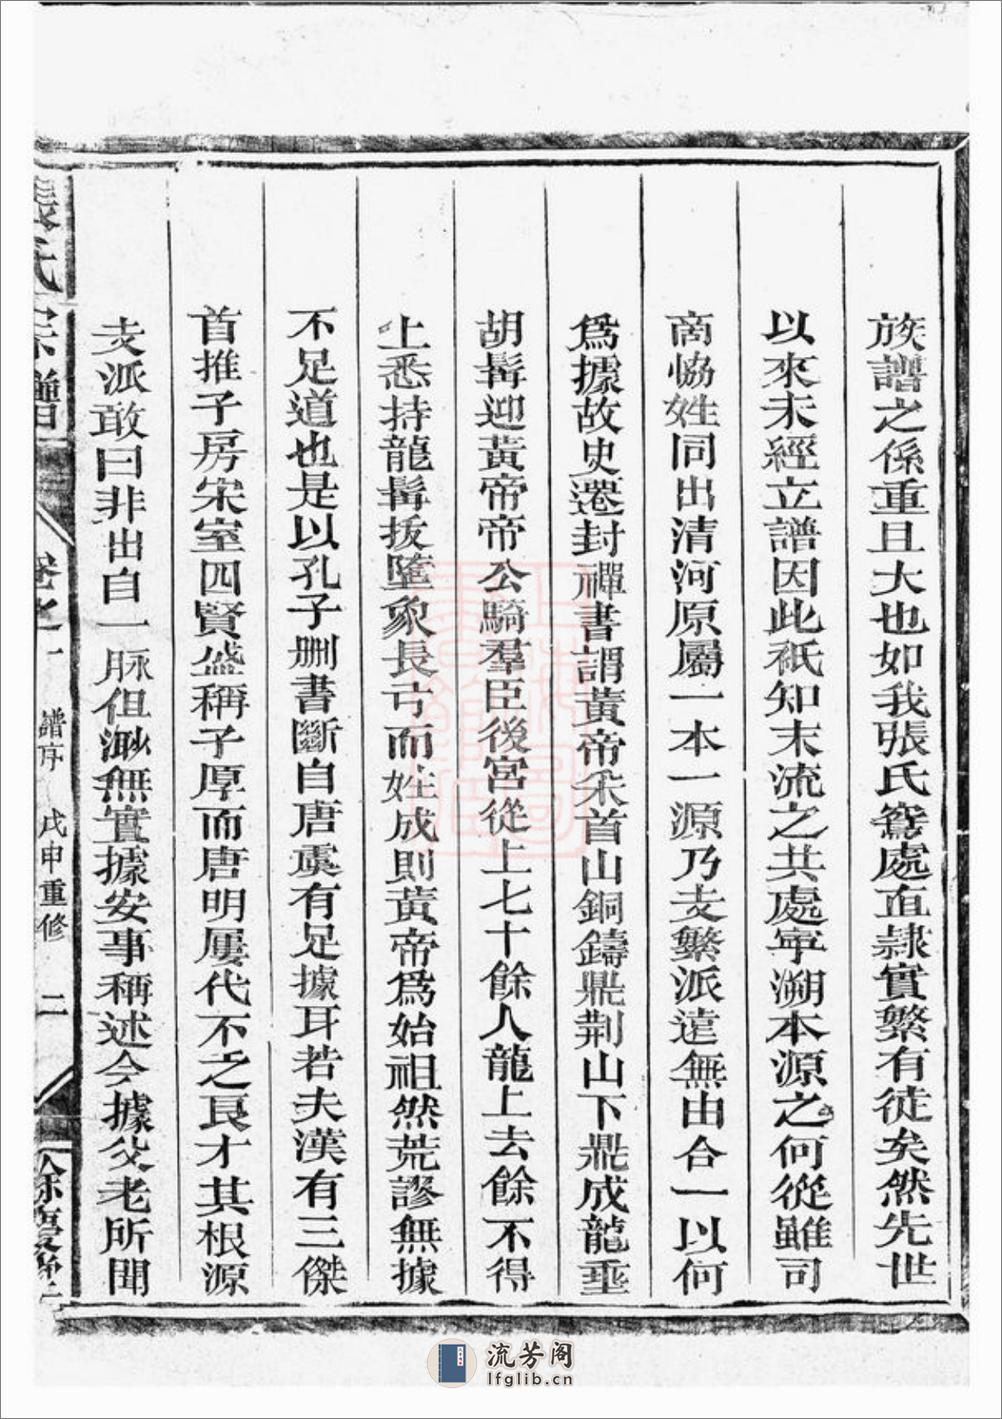 族譜之係重且大也如我張氏窵處直隷實繁有徒矣然先世
以來未經立譜因此祇知末流之共處寧溯本源之何從雖司
商恊姓同出清河原屬一本一源乃支繁派遠無由合一以何
爲據故史遷封禪書謂黃帝采首山銅鑄鼎荆山下鼎成龍垂
胡髯迎黃帝帝公騎羣臣後宮從上七十餘人龍上去餘不得
上悉持龍髯拔墮象長弓而姓成則黃帝爲始祖然荒謬無據
不足道也是以孔子刪書斷自唐虞有足據耳若夫漢有三傑
首推子房宋室四賢盛稱子厚而唐明屢代不乏良才其根源
支派敢曰非出自一脈但渺無實據安事稱述今據父老所聞
張氏宗譜 卷之一 譜序 戊申重修 二 餘慶堂
流芳阁
lfglib.cn